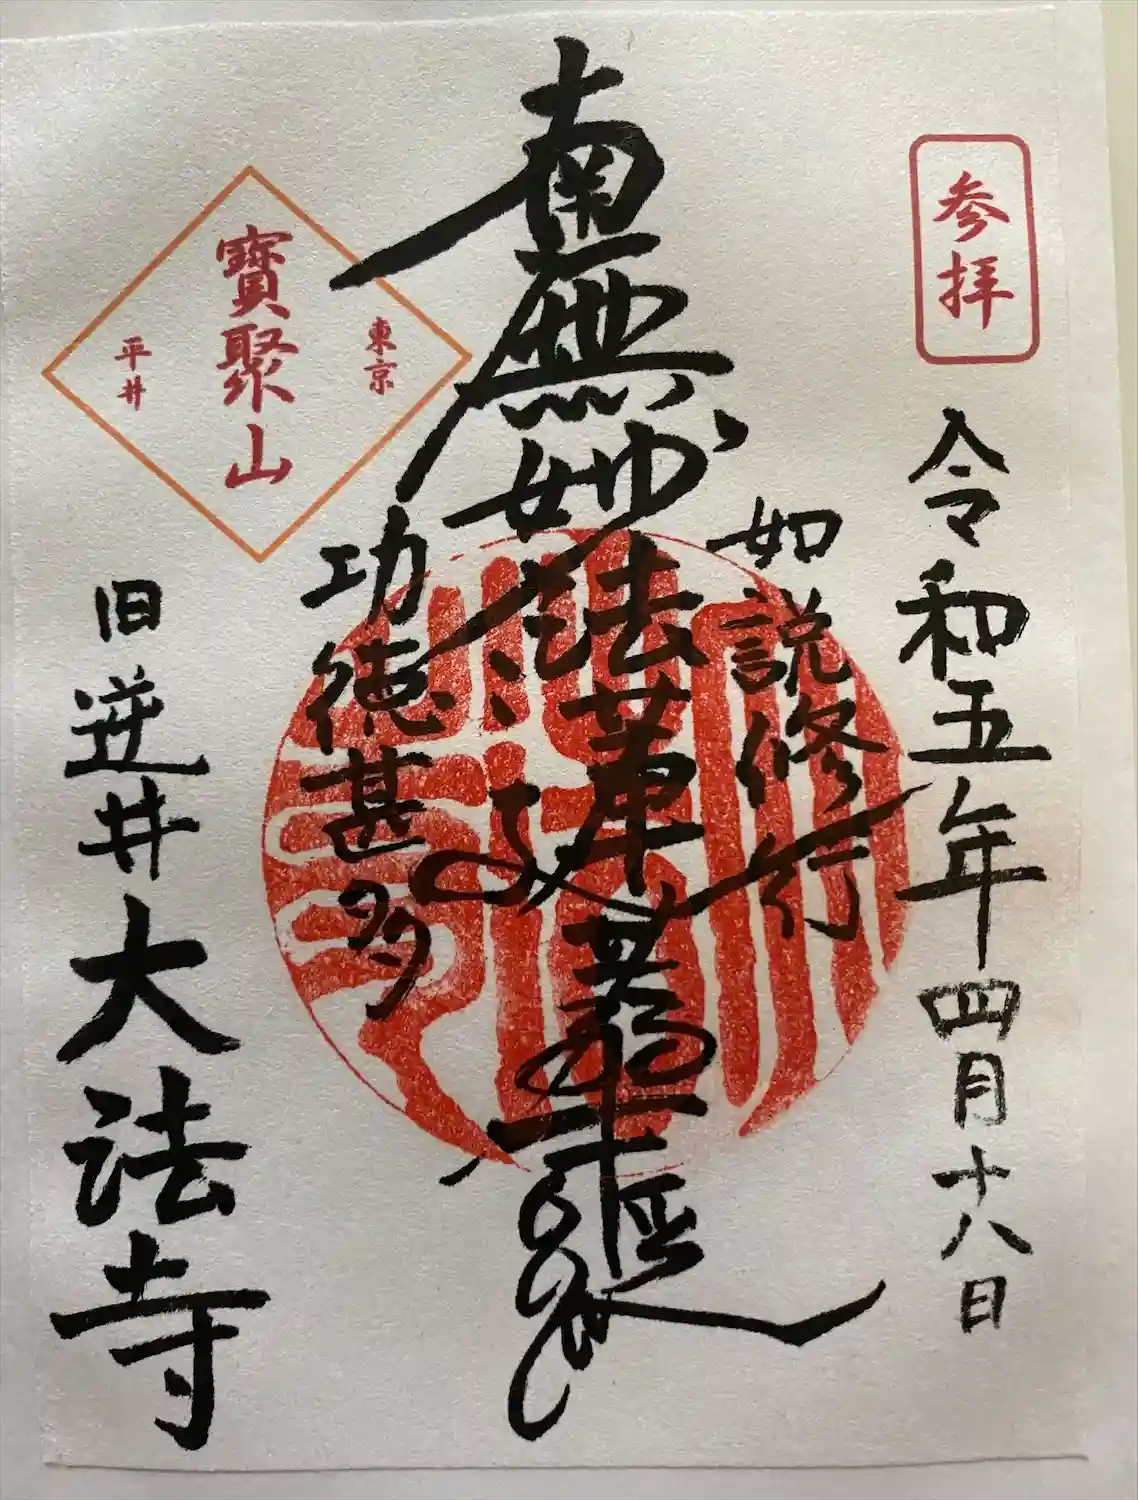 参拝
令和五年四月十八日
如説修行
南無妙法蓮華経
功徳甚多
東京
寳聚山
平井
旧逆井大法寺